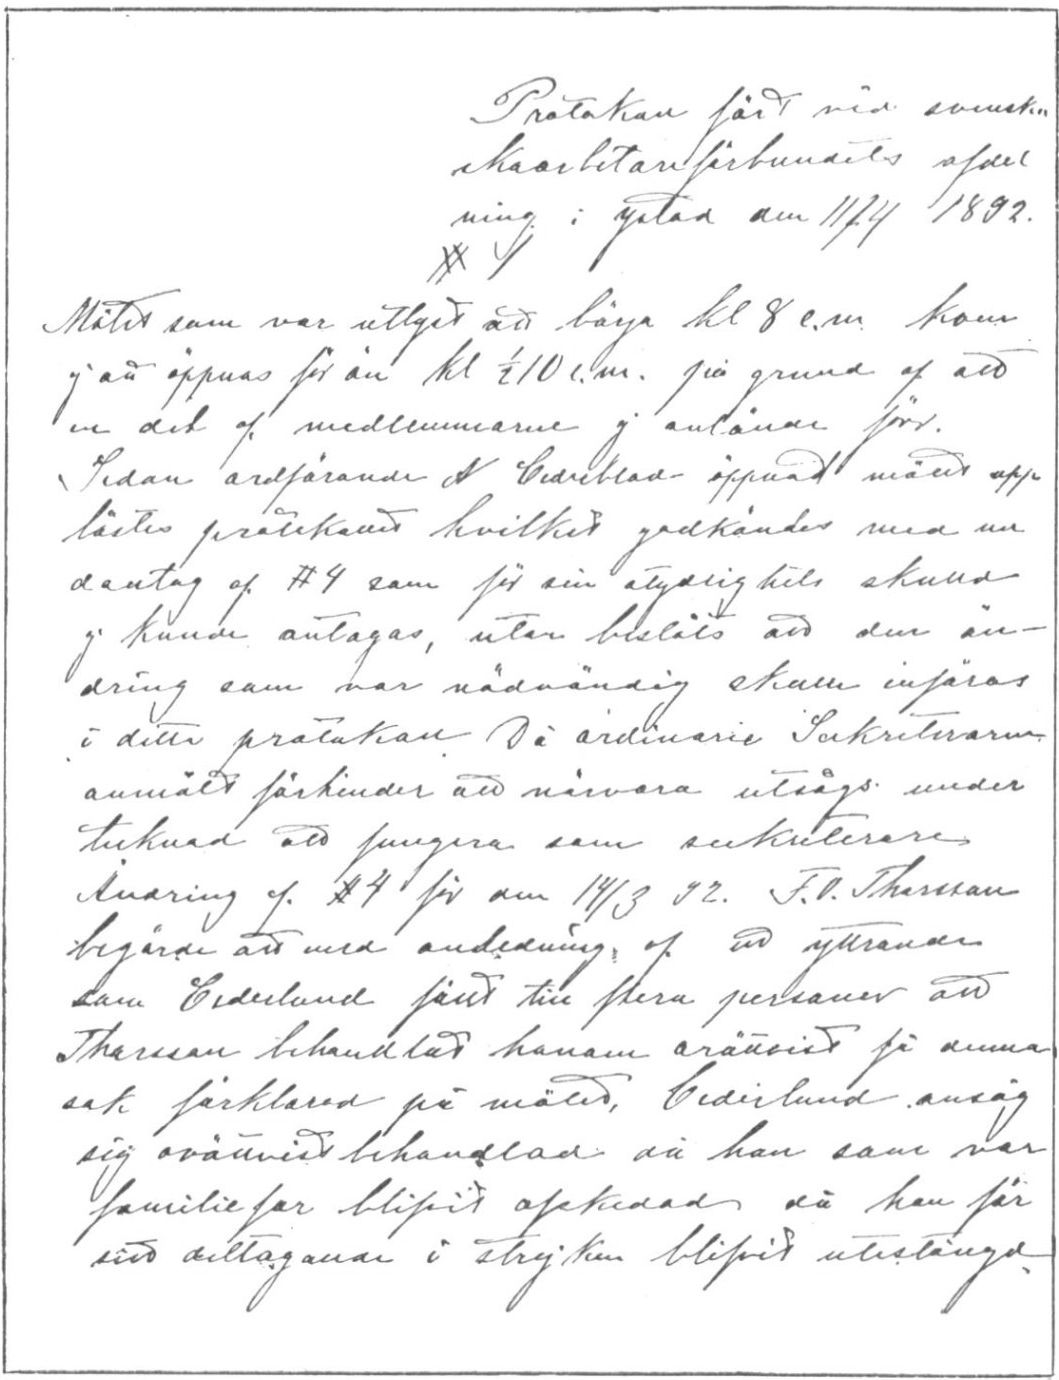 Protokoll fört vid svensk..
skoarbetareförbundets afdel
ning i Ystad den 11/4 1892.
# 1
Mötet som var utlyst att börja kl 8 e.m. kom
ej att öppnas för än kl ½10 e.m. på grund af att
en del af medlemmarne ej anlände förr.
Sedan ordförande N Cederblad öppnat mötet upp
lästes protokollet hvilket godkändes med un
dantag af #4 som för sin otydlighets skulld
ej kunde antagas, utan beslöts att den än-
dring som var nödvändig skulle införas
i detta protokoll Då ordinarie Sekreteraren
anmält förhinder att närvara utsågs under
teknad att fungera som sekreterare
Ändring af #4 för den 14/3 92. F.O. Thorsson
begärde att med anledning af ett yttrande
som Cederlund fällt till flera personer att
Thorsson behandlat honom orättvist få denna
sak förklarad på mötet, Cederlund ansåg
sig orättvist behandlad då han som var
familiefar blifvit afskedad då han för
sitt deltagande i strejken blifvit utestängd